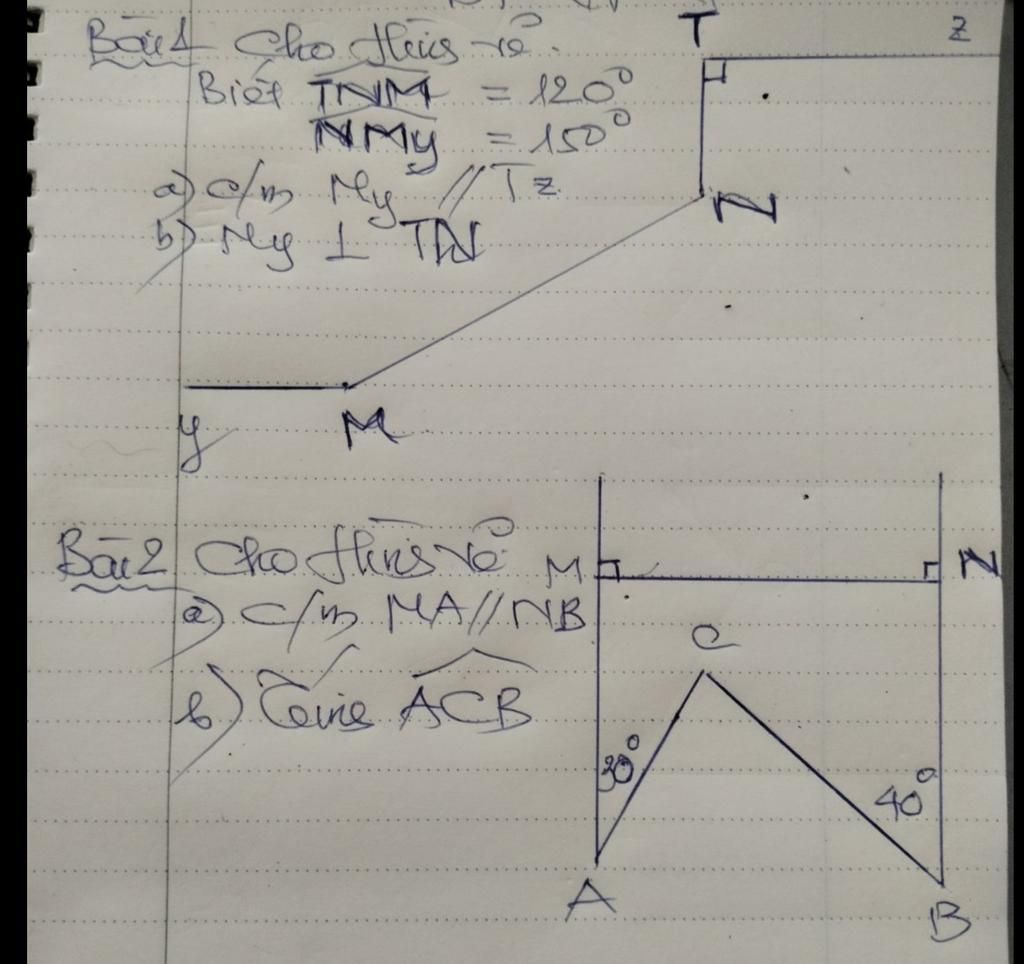 Bài 1 Cho hình vẽ.
Biết TNM = 120°
NMy = 150°
a) c/m My // Tz
b) My ⊥ TN
T
z
N
y
M
Bài 2 Cho hình vẽ.
a) C/m MA // NB
b) Tính ACB
M
N
C
30°
40°
A
B